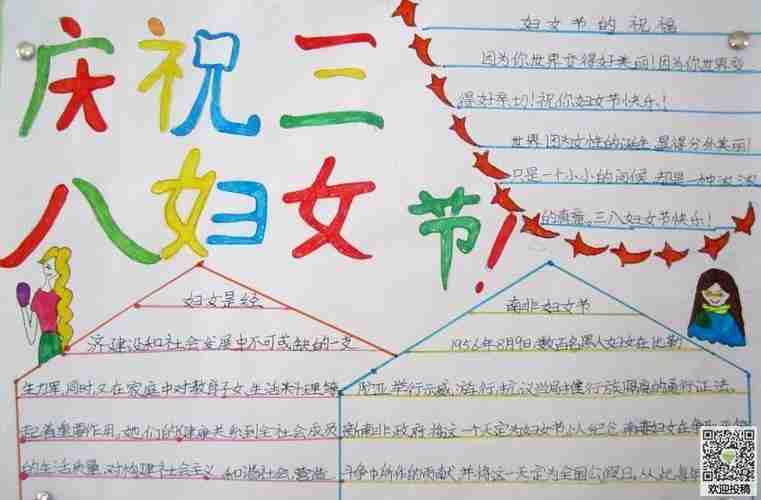 庆祝三
八妇女节!
妇女节的祝福
因为你世界变得好美丽!因为你世界变
得好亲切!祝你妇女节快乐!
世界因为女性的诞生,显得分外美丽!
只是一个小小的问候,却是一种浓浓
的真意,三八妇女节快乐!
妇女是经
济建设和社会发展中不可或缺的一支
生力军,同时,又在家庭中对教育子女,生活料理等
起着重要作用,她们的健康关系到全社会成员
的生活质量,对构建社会主义 和谐社会,营造
南非妇女节
1956年8月9日,数百名黑人妇女在比勒
亚,举行示威,游行,抗议当局推行族隔离的通行证法。
新南非政府,将这一个天定为妇女节,以纪念,南非妇女在
斗争中所作的贡献,并将这一天定为全国公假日,从此,每年
欢迎投稿